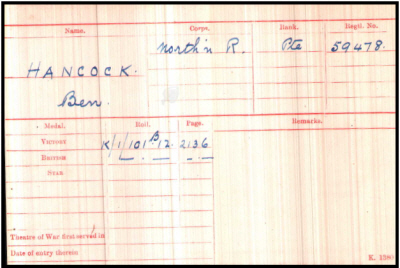 Name. Corps. Rank. Regtl. No.
North'n R. Pte 59478.
HANCOCK.
Ben.
Medal. Roll. Page. Remarks.
VICTORY K/1/101 B 12. 2136
BRITISH
STAR
Theatre of War first served in
Date of entry therein
K. 1380